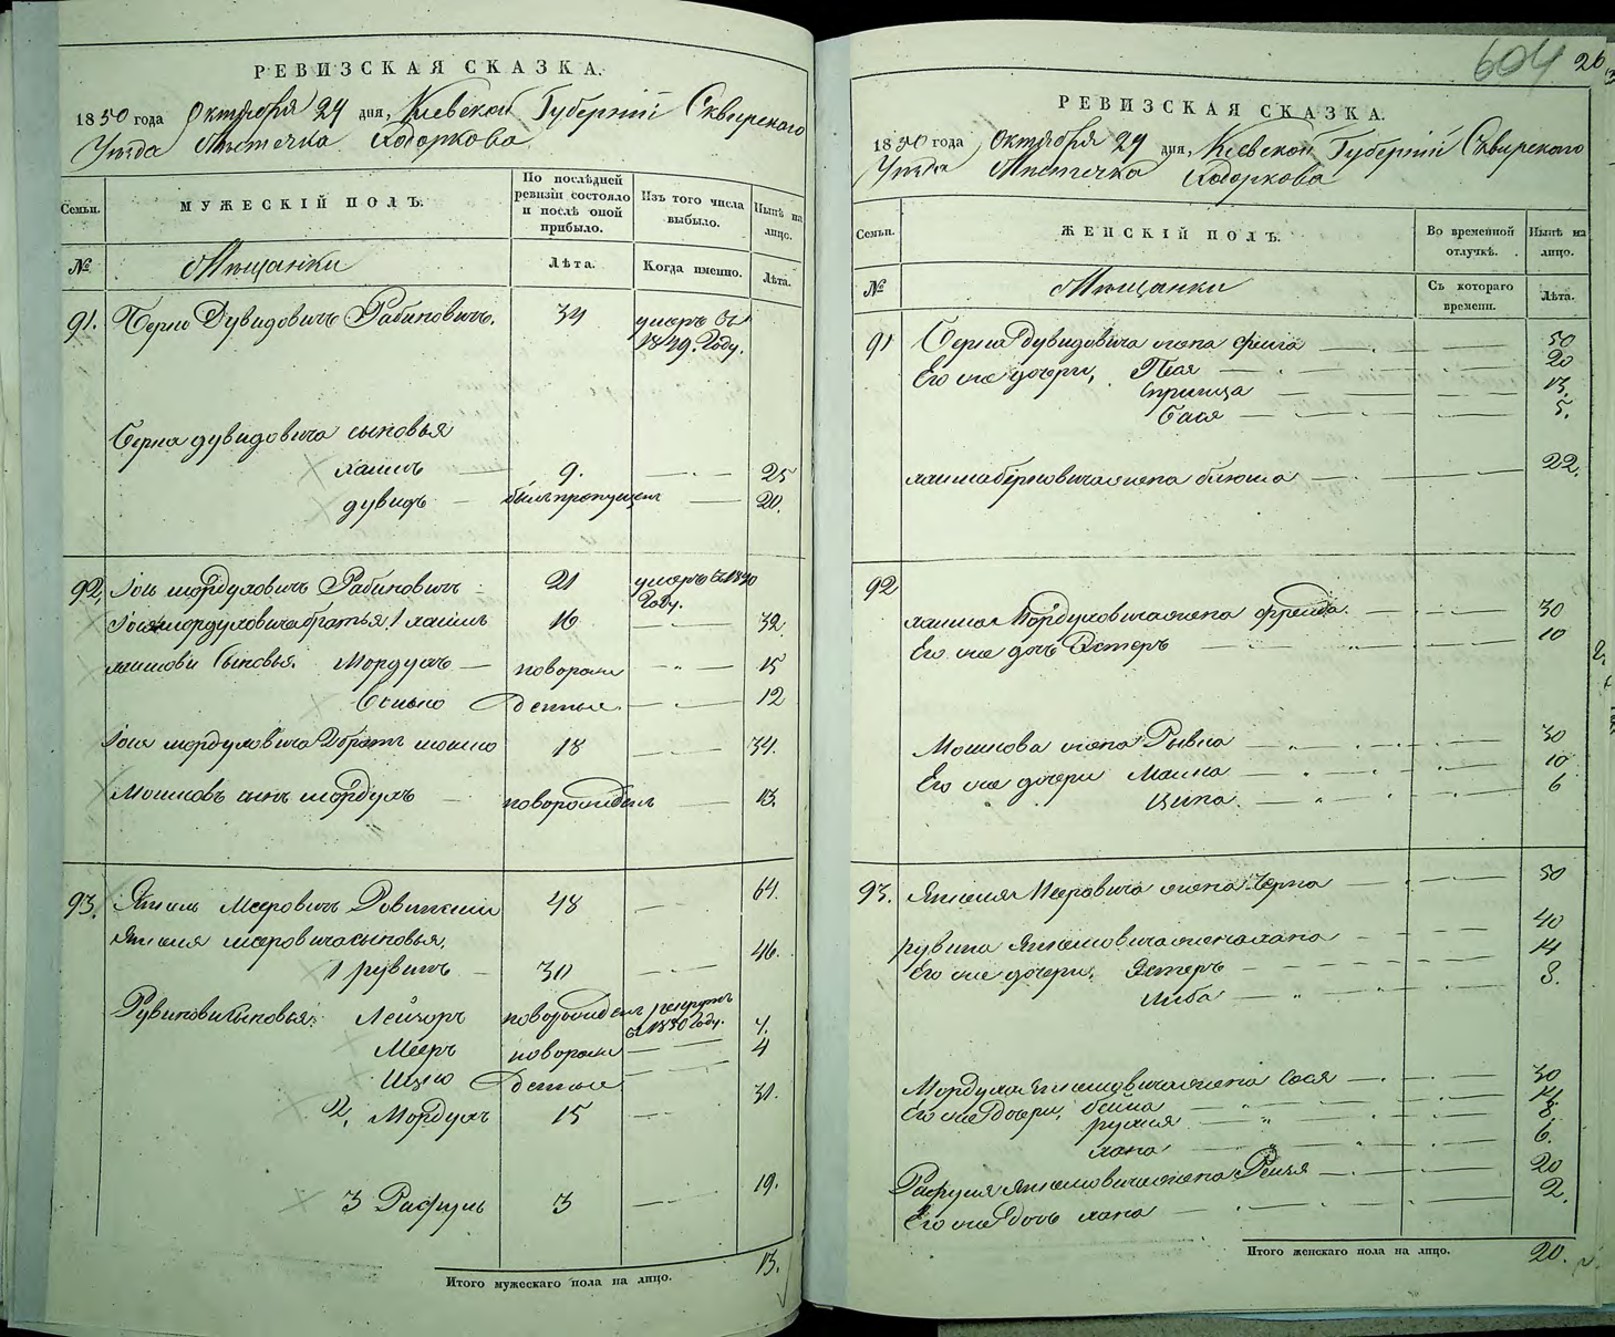 РЕВИЗСКАЯ СКАЗКА.
1850 года Октября 24 дня, Киевской Губернии Сквирского
Уезда Местечка Ходоркова
Семьи.
МУЖЕСКІЙ ПОЛЪ.
По послѣдней ревизіи состояло и послѣ оной прибыло.
Изъ того числа выбыло.
Нынѣ на лицо.
№
Мещанки
Лѣта.
Когда именно.
Лѣта.
91. Берко Дувидовичъ Рабиновичъ. 34 умеръ въ
1849. Году.
Берка дувидовича сыновья
хаимъ 9. 25
дувидъ былъ пропущенъ 20.
92, Іось мордуховичъ Рабиновичъ 21 умеръ въ 1840
Году.
Іося мордуховича братья 1 хаимъ 16 32
хаимови сыновья. Мордухъ — новорож 15
денные 12
Іося мордуховича 2 братъ мошко 18 34.
Мошковъ сынъ мордухъ новорожденъ 13.
93. Мееровичъ 48 64.
меровича сыновья.
1 рувинъ 30 46.
Рувинови сыновья: Лейзоръ новорожденъ рекрутъ
въ 1850 Году.
Мееръ новорож 7.
Ицко денные 4
2, Мордухъ 15 31.
3 Рафуль 3 19.
Итого мужескаго пола на лицо. 13.
604 26
РЕВИЗСКАЯ СКАЗКА.
1850 года Октября 24 дня, Киевской Губернии Сквирского
Уезда Местечка Ходоркова
Семьи.
ЖЕНСКІЙ ПОЛЪ.
Во временной отлучкѣ.
Нынѣ на лицо.
№
Мещанки
Съ котораго времени.
Лѣта.
91 Берка Дувидовича жена фейга 50
Его же дочери, 20
спринца 13.
Бася 5.
хаима берковича жена блюма 22.
92
хаима Мордуховича жена фрейда. 30
Его же дочь Эстеръ 10
Мошкова жена Рывка 30
Его же дочери Малка 10
ципа. 6
93. Меровича жена Черна 50
рувина жена хана 40
Его же дочери, Эстеръ 14
Либа 8.
Мордуха жена сося 30
Его же Дочери, бейла 14.
рухля 8.
хана 6.
Рафуля жена Рейзя 20
Его же дочь хана 2.
Итого женскаго пола на лицо. 20.